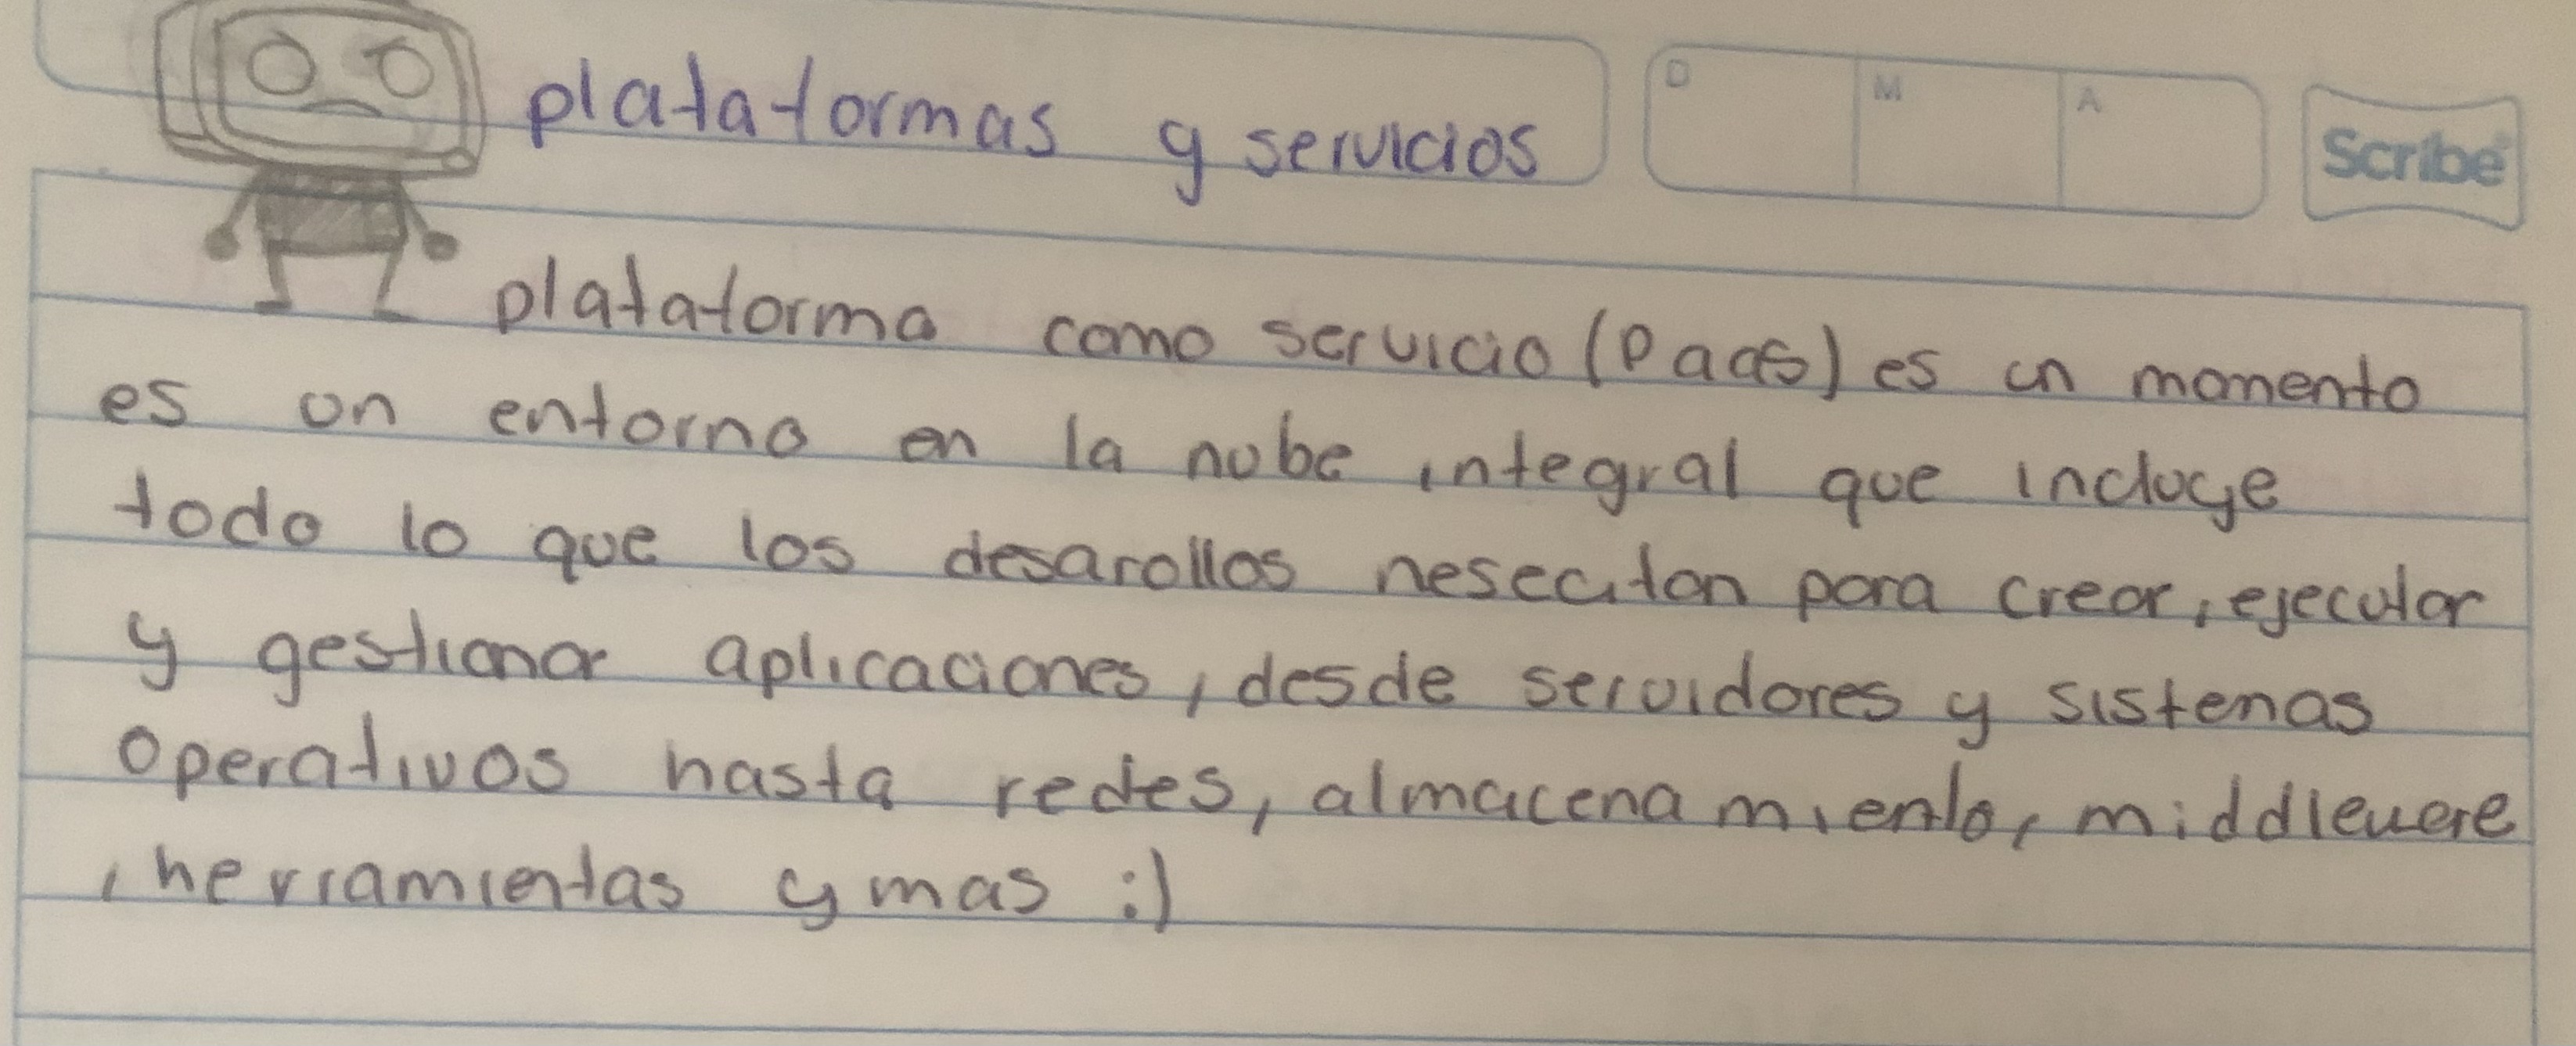 plataformas y servicios
D M A
Scribe
plataforma como servicio (PaaS) es un momento
es un entorno en la nube integral que incluye
todo lo que los desarollos neseciton para crear, ejecutar
y gestionar aplicaciones, desde servidores y sistenas
operativos hasta redes, almacenamiento, middlewere
, herramientas y mas :)